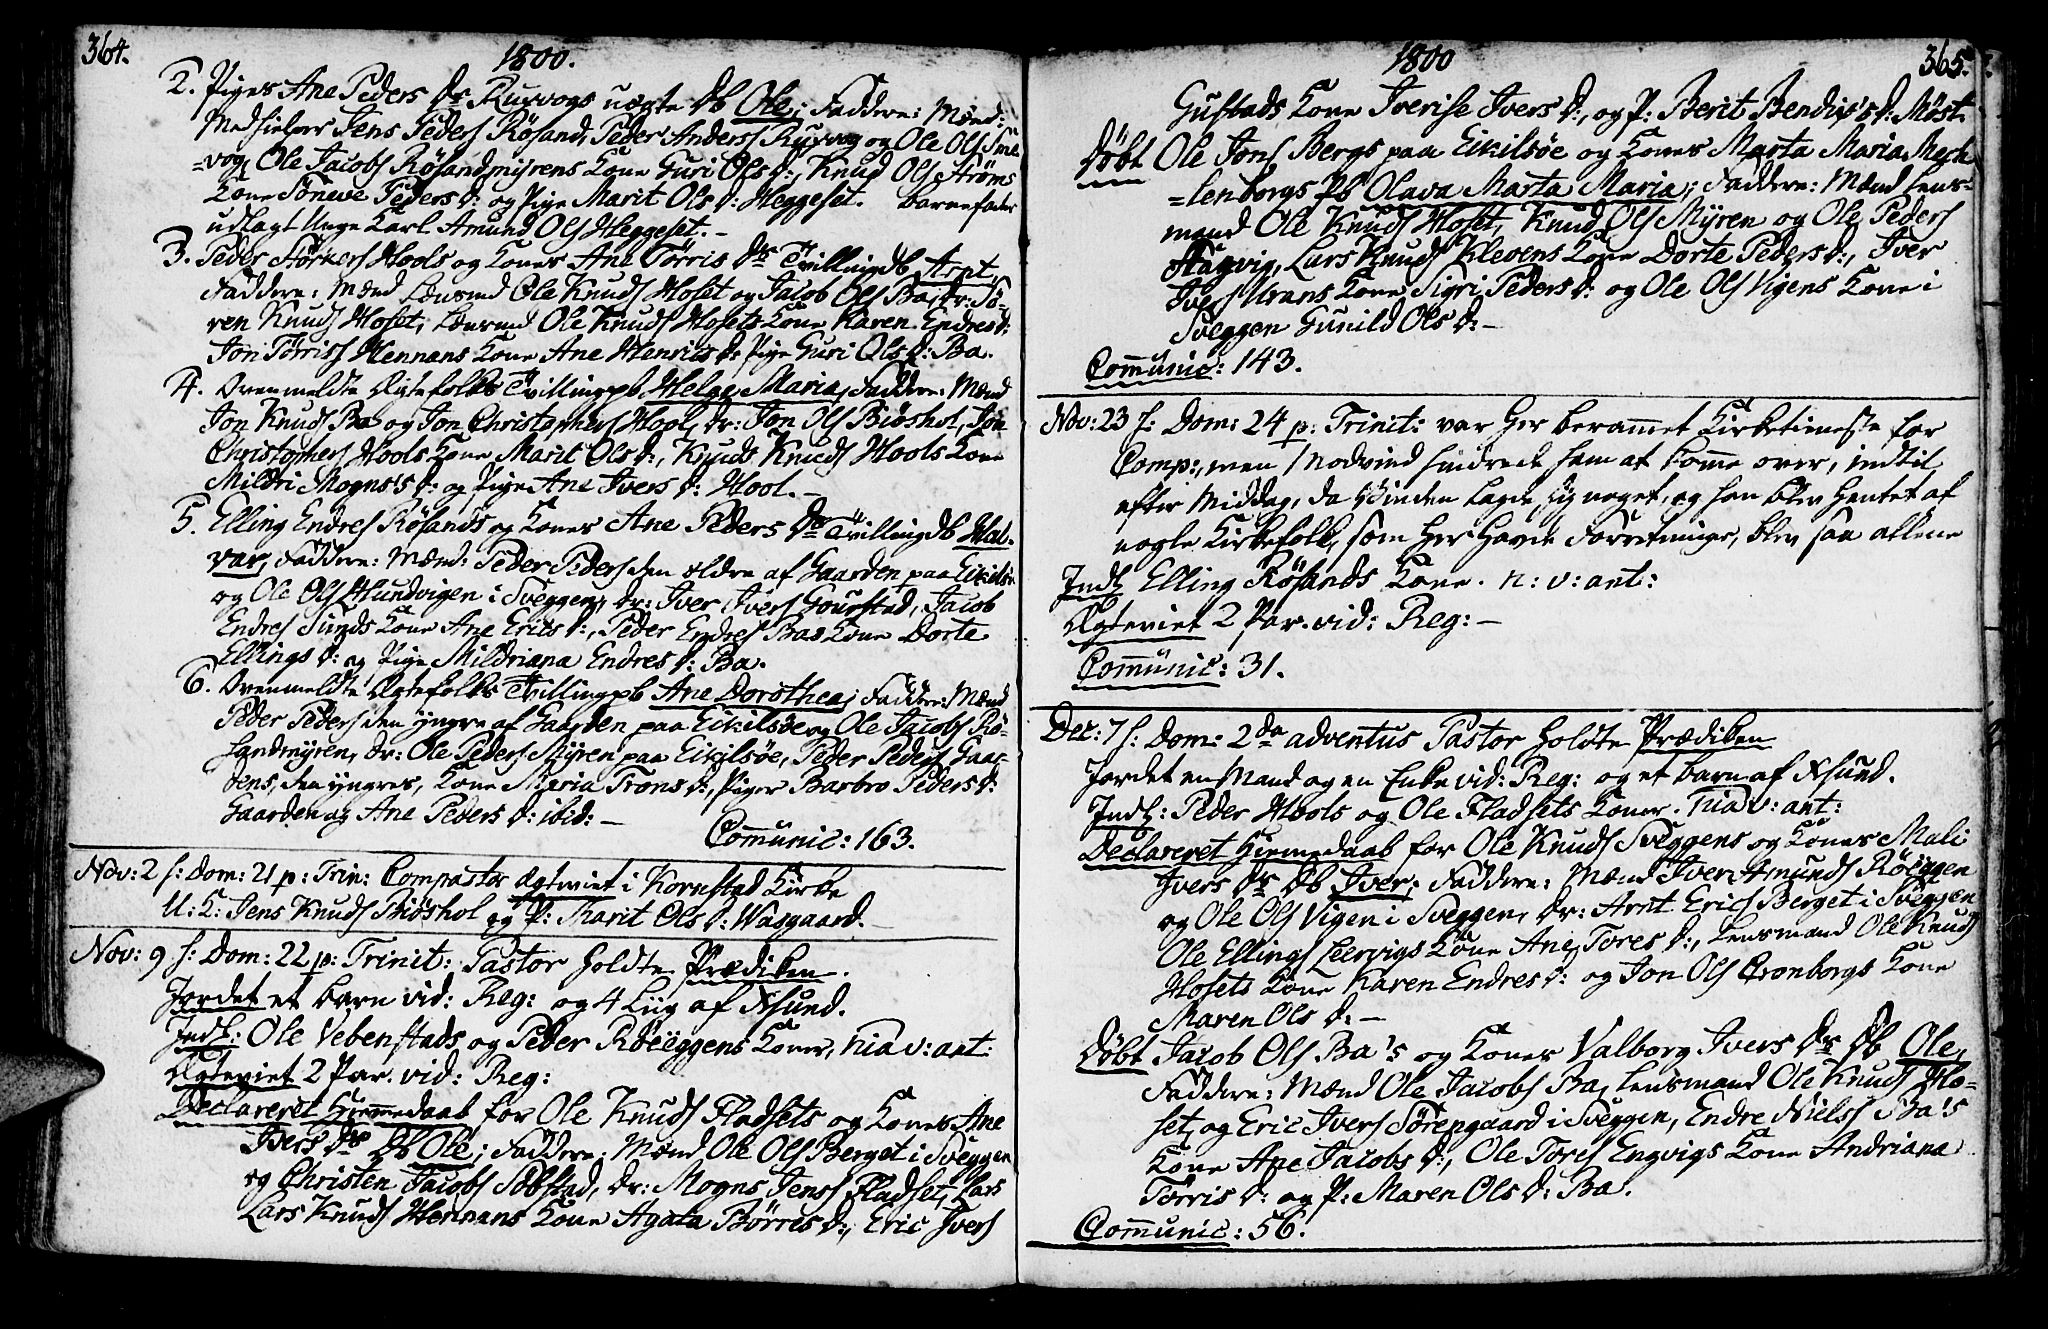 364.
1800.
2. Piges Ane Peders Dr Ruxvogs uægte Db Ole; Faddere: Mænd:
Medhielper Jens Peders Rösand, Peder Anders Ruxvog og Ole Ols
=vog, Ole Jacobs Rösandmyrens Kone Guri Ols d:, Knud Ols Ströms
Kone Söneve Peders d: og Pige Marit Ols d: Heggeset. Barnefader
udlagt Unge Karl Amund Ols Heggeset. –
3. Peder Störkers Hools og Kones Ane Törris Dr Tvillingdb Arnt,
Faddere: Mænd Lensmd Ole Knuds Hoset og Jacob Ols Ba, Dr: Sö-
ren Knuds Hoset, Lensmd Ole Knuds Hosets Kone Karen Endres d:
Jon Törriss Hennans Kone Ane Henrics d: Pige Guri Ols d: Ba.
4. Ovenmeldte Ægtefolks Tvillingpb Helge Maria, Faddere: Mænd
Jon Knuds Ba og Jon Christophers Hool, Dr: Jon Ols Bidshol, Jon
Christophers Hools Kone Marit Ols d:, Knud Knuds Hools Kone
Mildri Mogns's d: og Pige Ane Ivers d: Hool. –
5. Elling Endres Rösands og Kones Ane Peders Dr Tvillingdb Hal-
var, Faddere: Mænd: Peder Peders den ældre af Gaarden paa Eikilsöe
og Ole Ols Hundvigen i Sveggen, Dr: Iver Ivers Gourstad, Jacob
Endres Sunds Kone Ane Erics d:, Peder Endres Bas Kone Dorte
Ellings d: og Pige Mildriana Endres d: Ba.
6. Ovenmeldte Ægtefolks Tvillingpb Ane Dorothea; Faddere: Mænd
Peder Peders den yngre af Gaarden paa Eikilsöe og Ole Jacobs Rö-
sandmyren, Dr: Ole Peders Myren paa Eikilsöe, Peder Peders Gaar-
dens, den yngres, Kone Maria Trons d:, Piger Barbro Peders d:
Gaarden og Ane Peders d: ibid: –
Communic: 163.
Nov: 2 s: Dom: 21 p: Trin: Compastor Ægteviet i Kornstad Kirke
U: K: Jens Knuds Bidshol og P: Marit Ols d: Wasgaard. –
Nov: 9 s: Dom: 22 p: Trinit: Pastor holdte Prædiken.
Jordet et barn vid: Reg: og 4 Liig af Xsund.
Indl: Ole Vebenstads og Peder Röeyggens Koner, nia v: ant:
Ægteviet 2 Par. vid: Reg:
Declareret Hiemmedaab for Ole Knuds Fladsets og Kones Ane
Ivers Dr Db Ole; Faddere: Mænd Ole Ols Berget i Sveggen
og Christen Jacobs Sobstad, Dr: Mogns Jenss Fladset, Lars
Lars Knuds Hennans Kone Agata Börres d:, Eric Ivers
1800
365.
Gustads Kone Iverise Ivers d:, og P: Berit Bendix's d: Möst.
Döbt Ole Jons Bergs paa Eikilsöe og Kones Marta Maria Mech
=lenborgs Pb Olava Marta Maria; Faddere: Mænd Lens-
mand Ole Knuds Hoset, Knud Ols Myren og Ole Peders
Stagvig, Lars Knuds Klevens Kone Dorte Peders d:, Iver
Ivers Urans Kone Sigri Peders d: og Ole Ols Vigens Kone i
Sveggen Gunild Ols d: –
Communic: 143.
Nov: 23 s: Dom: 24 p: Trinit: var her berammet Kirketieneste for
Comp:, men Modvind hindrede ham at komme over, indtil
efter Middag, da Vinden lagde sig noget, og han blev hentet af
nogle Kirkefolk, som her havde Forretninger, blev saa allene
Indl Elling Rösands Kone. n: v: ant:
Ægteviet 2 Par. vid: Reg: –
Communic: 31.
Dec: 7 s: Dom: 2da adventus Pastor holdte Prædiken
Jordet en Mand og en Enke vid: Reg: og et barn af Xsund.
Indl: Peder Hools og Ole Fladsets Koner. nia v: ant:
Declareret Hiemmedaab for Ole Knuds Sveggens og Kones Mali
Ivers Dr Db Iver; Faddere: Mænd Iver Amunds Röeggen
og Ole Ols Vigen i Sveggen, Dr: Arnt Erics Berget i Sveggen
Ole Ellings Leervigs Kone Ane Tores d:, Lensmand Ole Knuds
Hosets Kone Karen Endres d: og Jon Ols Cronborgs Kone
Maren Ols d: –
Döbt Jacob Ols Ba's og Kones Valborg Ivers Dr Db Ole,
Faddere: Mænd Ole Jacobs Ba, Lensmand Ole Knuds Ho-
set, og Eric Ivers Sörengaard i Sveggen, Endre Niels's Ba's
Kone Ane Jacobs d:, Ole Tores Engvigs Kone Andriana
Törris d: og P: Maren Ols d: Ba.
Communic: 56.